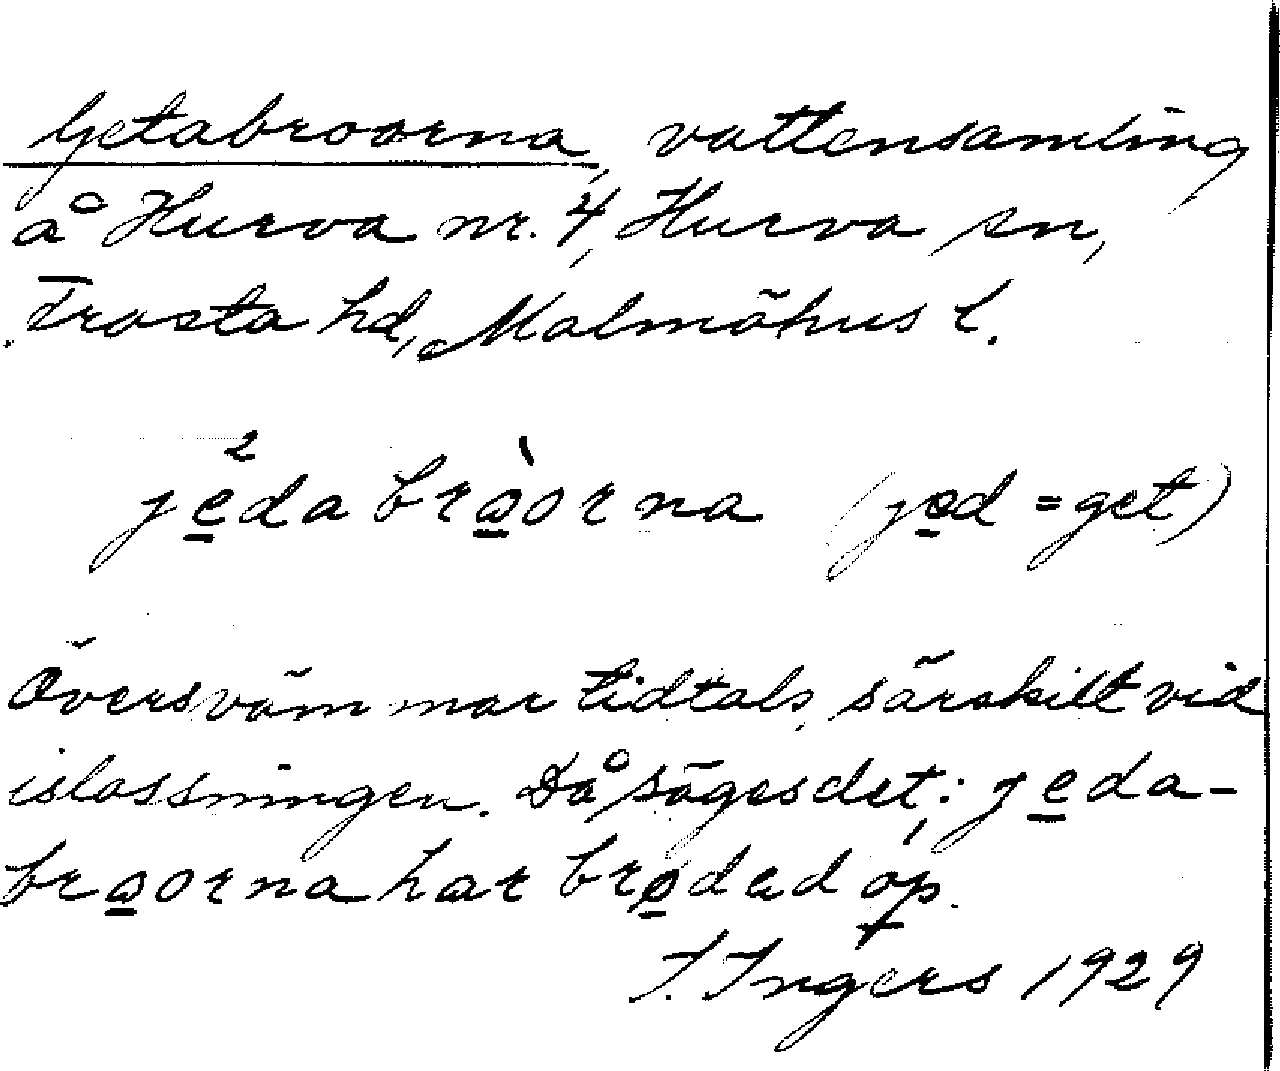 Getabroarna, vattensamling
å Hurva nr. 4, Hurva sn,
Frosta hd, Malmöhus l.
jeda braorna (jed = get)
Översvämmar tidtals, särskilt vid
islossningen. Då säges det: jeda-
braorna har brodad op.
I. Ingers 1929